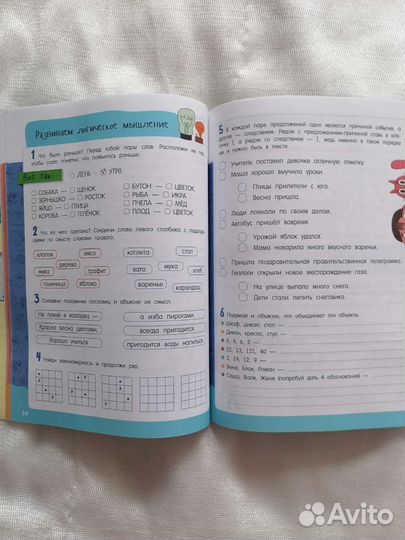 Развиваем логическое мышление
1 Что было раньше? Перед тобой пары слов. Расположи их так,
чтобы стало понятно, что появилось раньше.
Вот так: ДЕНЬ — УТРО.
СОБАКА — ЩЕНОК
ЗЁРНЫШКО — РОСТОК
ЯЙЦО — ПТИЦА
КОРОВА — ТЕЛЁНОК
БУТОН — ЦВЕТОК
РЫБА — ИКРА
ПЧЕЛА — МЁД
ПЛОД — ЦВЕТОК
2 Что из чего сделано? Соедини слова левого столбика с подходя-
щими по смыслу словами правого.
хлопок мясо
дерево
мука графит
пшеница яблоко
котлета стол
вата мука хлеб
варенье карандаш
3 Соедини половинки пословиц и объясни их смысл.
Не плюй в колодец —
Красна весна цветами,
Хорошо учиться
а изба пирогами.
всегда пригодится.
пригодится воды напиться
4 Найди закономерность и продолжи ряд.
5 В каждой паре предложений одно является причиной события, а
другое — следствием. Рядом с предложением-причиной ставь в кле-
точку 1, а рядом со следствием — 2, ведь именно в таком порядке
их и нужно быть в тексте.
Учитель поставил девочке отличную отметку.
Маша хорошо выучила уроки.
Птицы прилетели с юга.
Весна пришла.
Люди поехали по своим делам.
Автобус пришёл вовремя.
Урожай яблок удался.
Мама наварила много вкусного варенья.
Пришла поздравительная правительственная телеграмма.
Геологи открыли новое месторождение газа.
На улице выпало много снега.
Дети стали лепить снеговика.
6 Подумай и объясни, что объединяет эти объекты.
Шкаф, диван, стол —
Диван, кресло, стул —
8, 4, 6, 2 —
22, 13, 121, 40 —
2, 19, 12, 9 —
Вена, Блок, Роман —
Саша, Валя, Женя (попробуй дать 4 обоснования) —
Avito